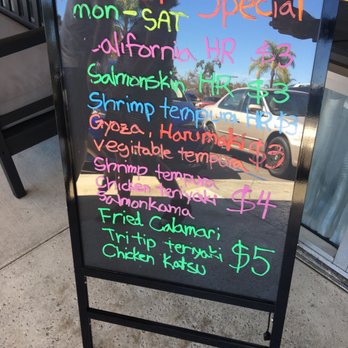 Special
mon-SAT
California HR $3
Salmonskin HR $3
Shrimp tempura HR $3
Gyoza, Harumaki
vegitable tempura $3
Shrimp tempura
Chicken teriyaki $4
Salmonkama
Fried Calamari
Tri-tip teriyaki $5
Chicken Katsu